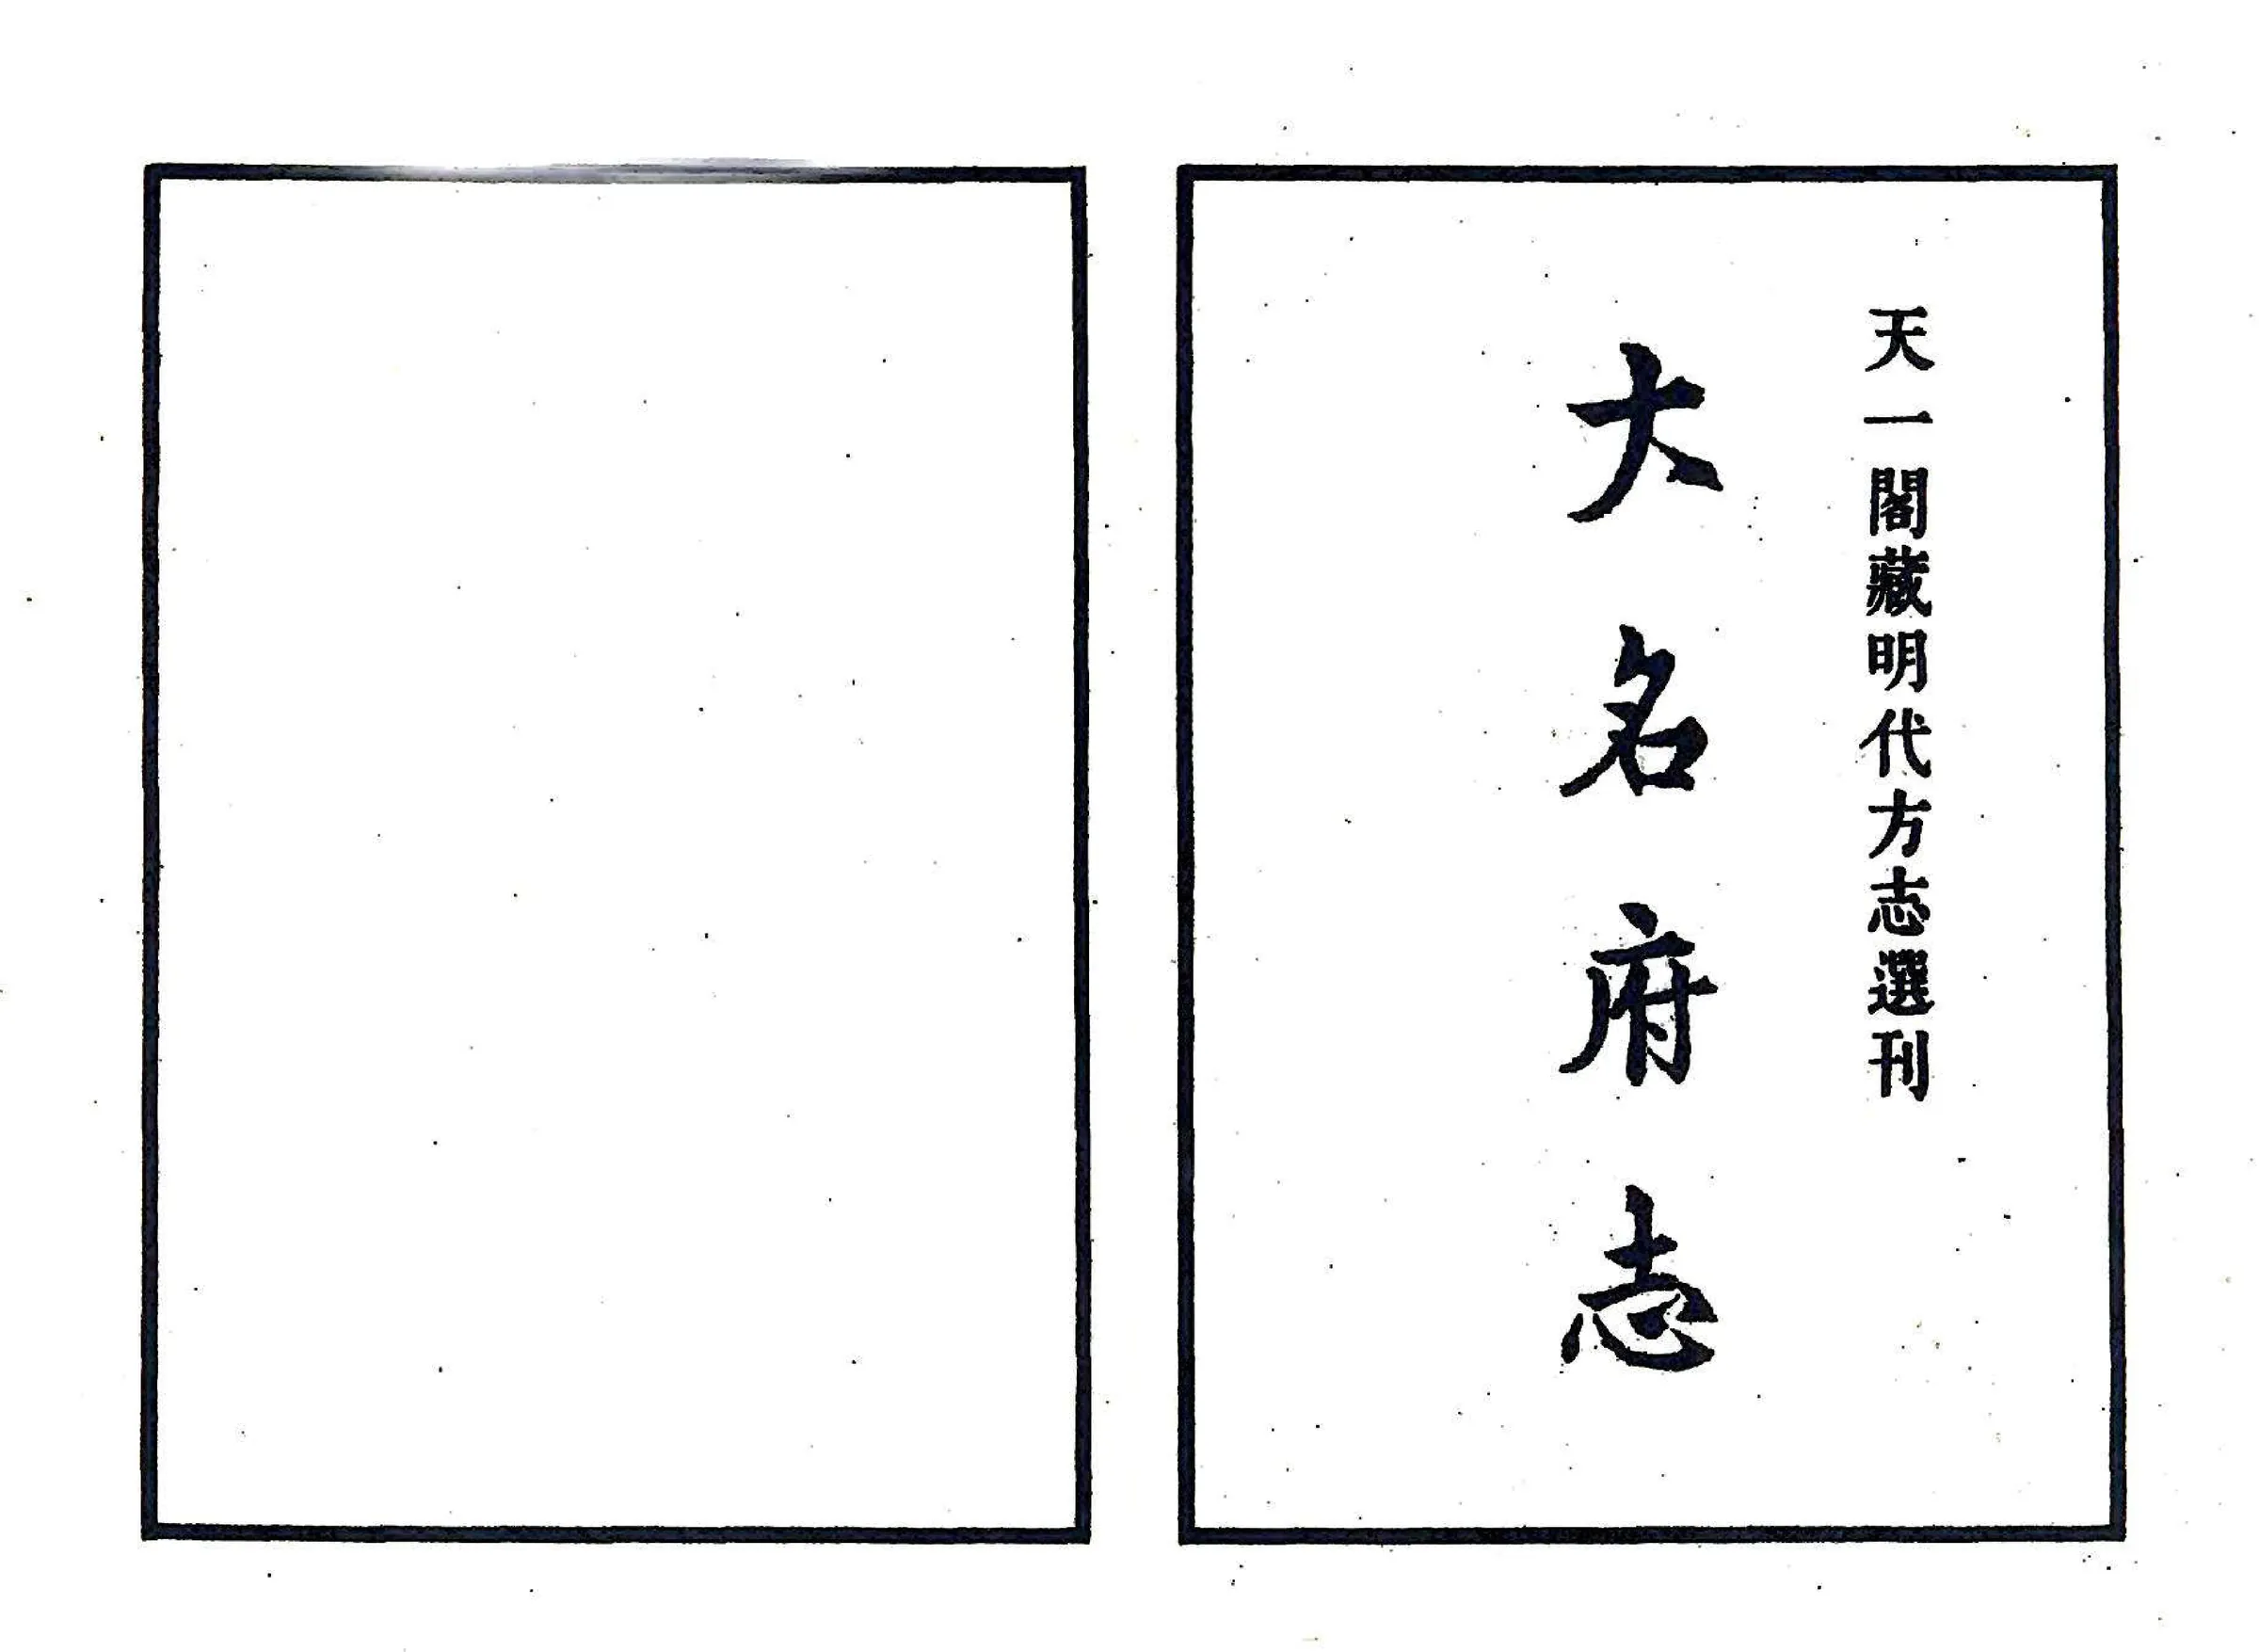 天一閣藏明代方志選刊
大名府志